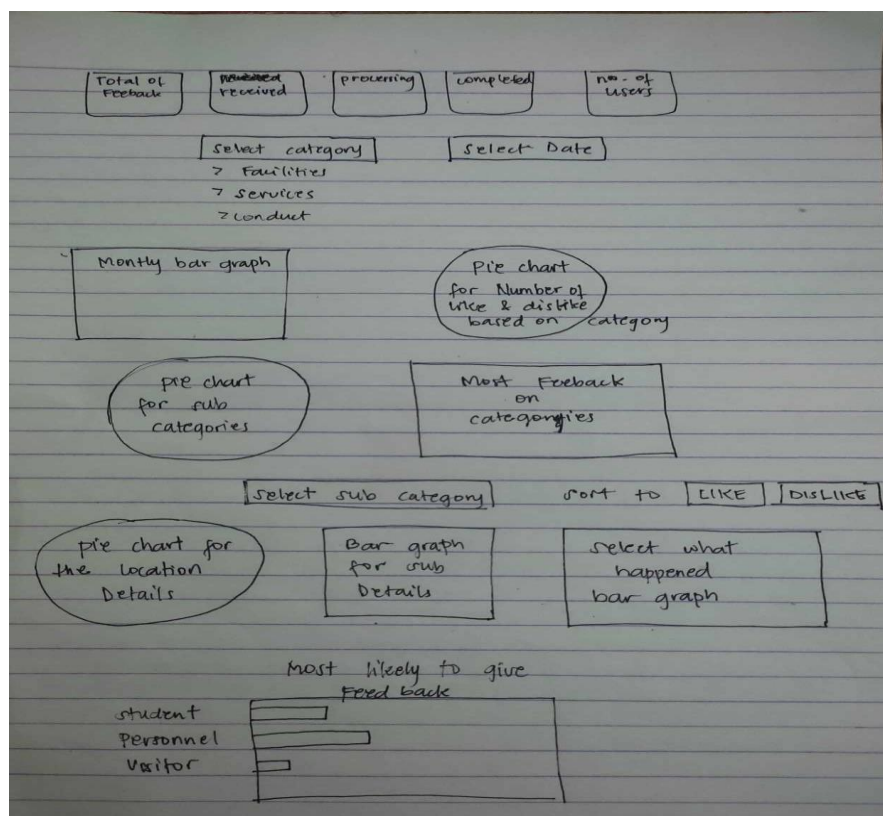 Total of
Feeback
received
processing
completed
no. of
users
Select category
Select Date
> Facilities
> Services
> conduct
Montly bar graph
Pie chart
for Number of
like & dislike
based on category
pie chart
for sub
categories
Most Feeback
on
categories
Select sub category
sort to
LIKE
DISLIKE
pie chart for
the location
Details
Bar graph
for sub
Details
select what
happened
bar graph
Most likely to give
Feed back
student
personnel
Visitor